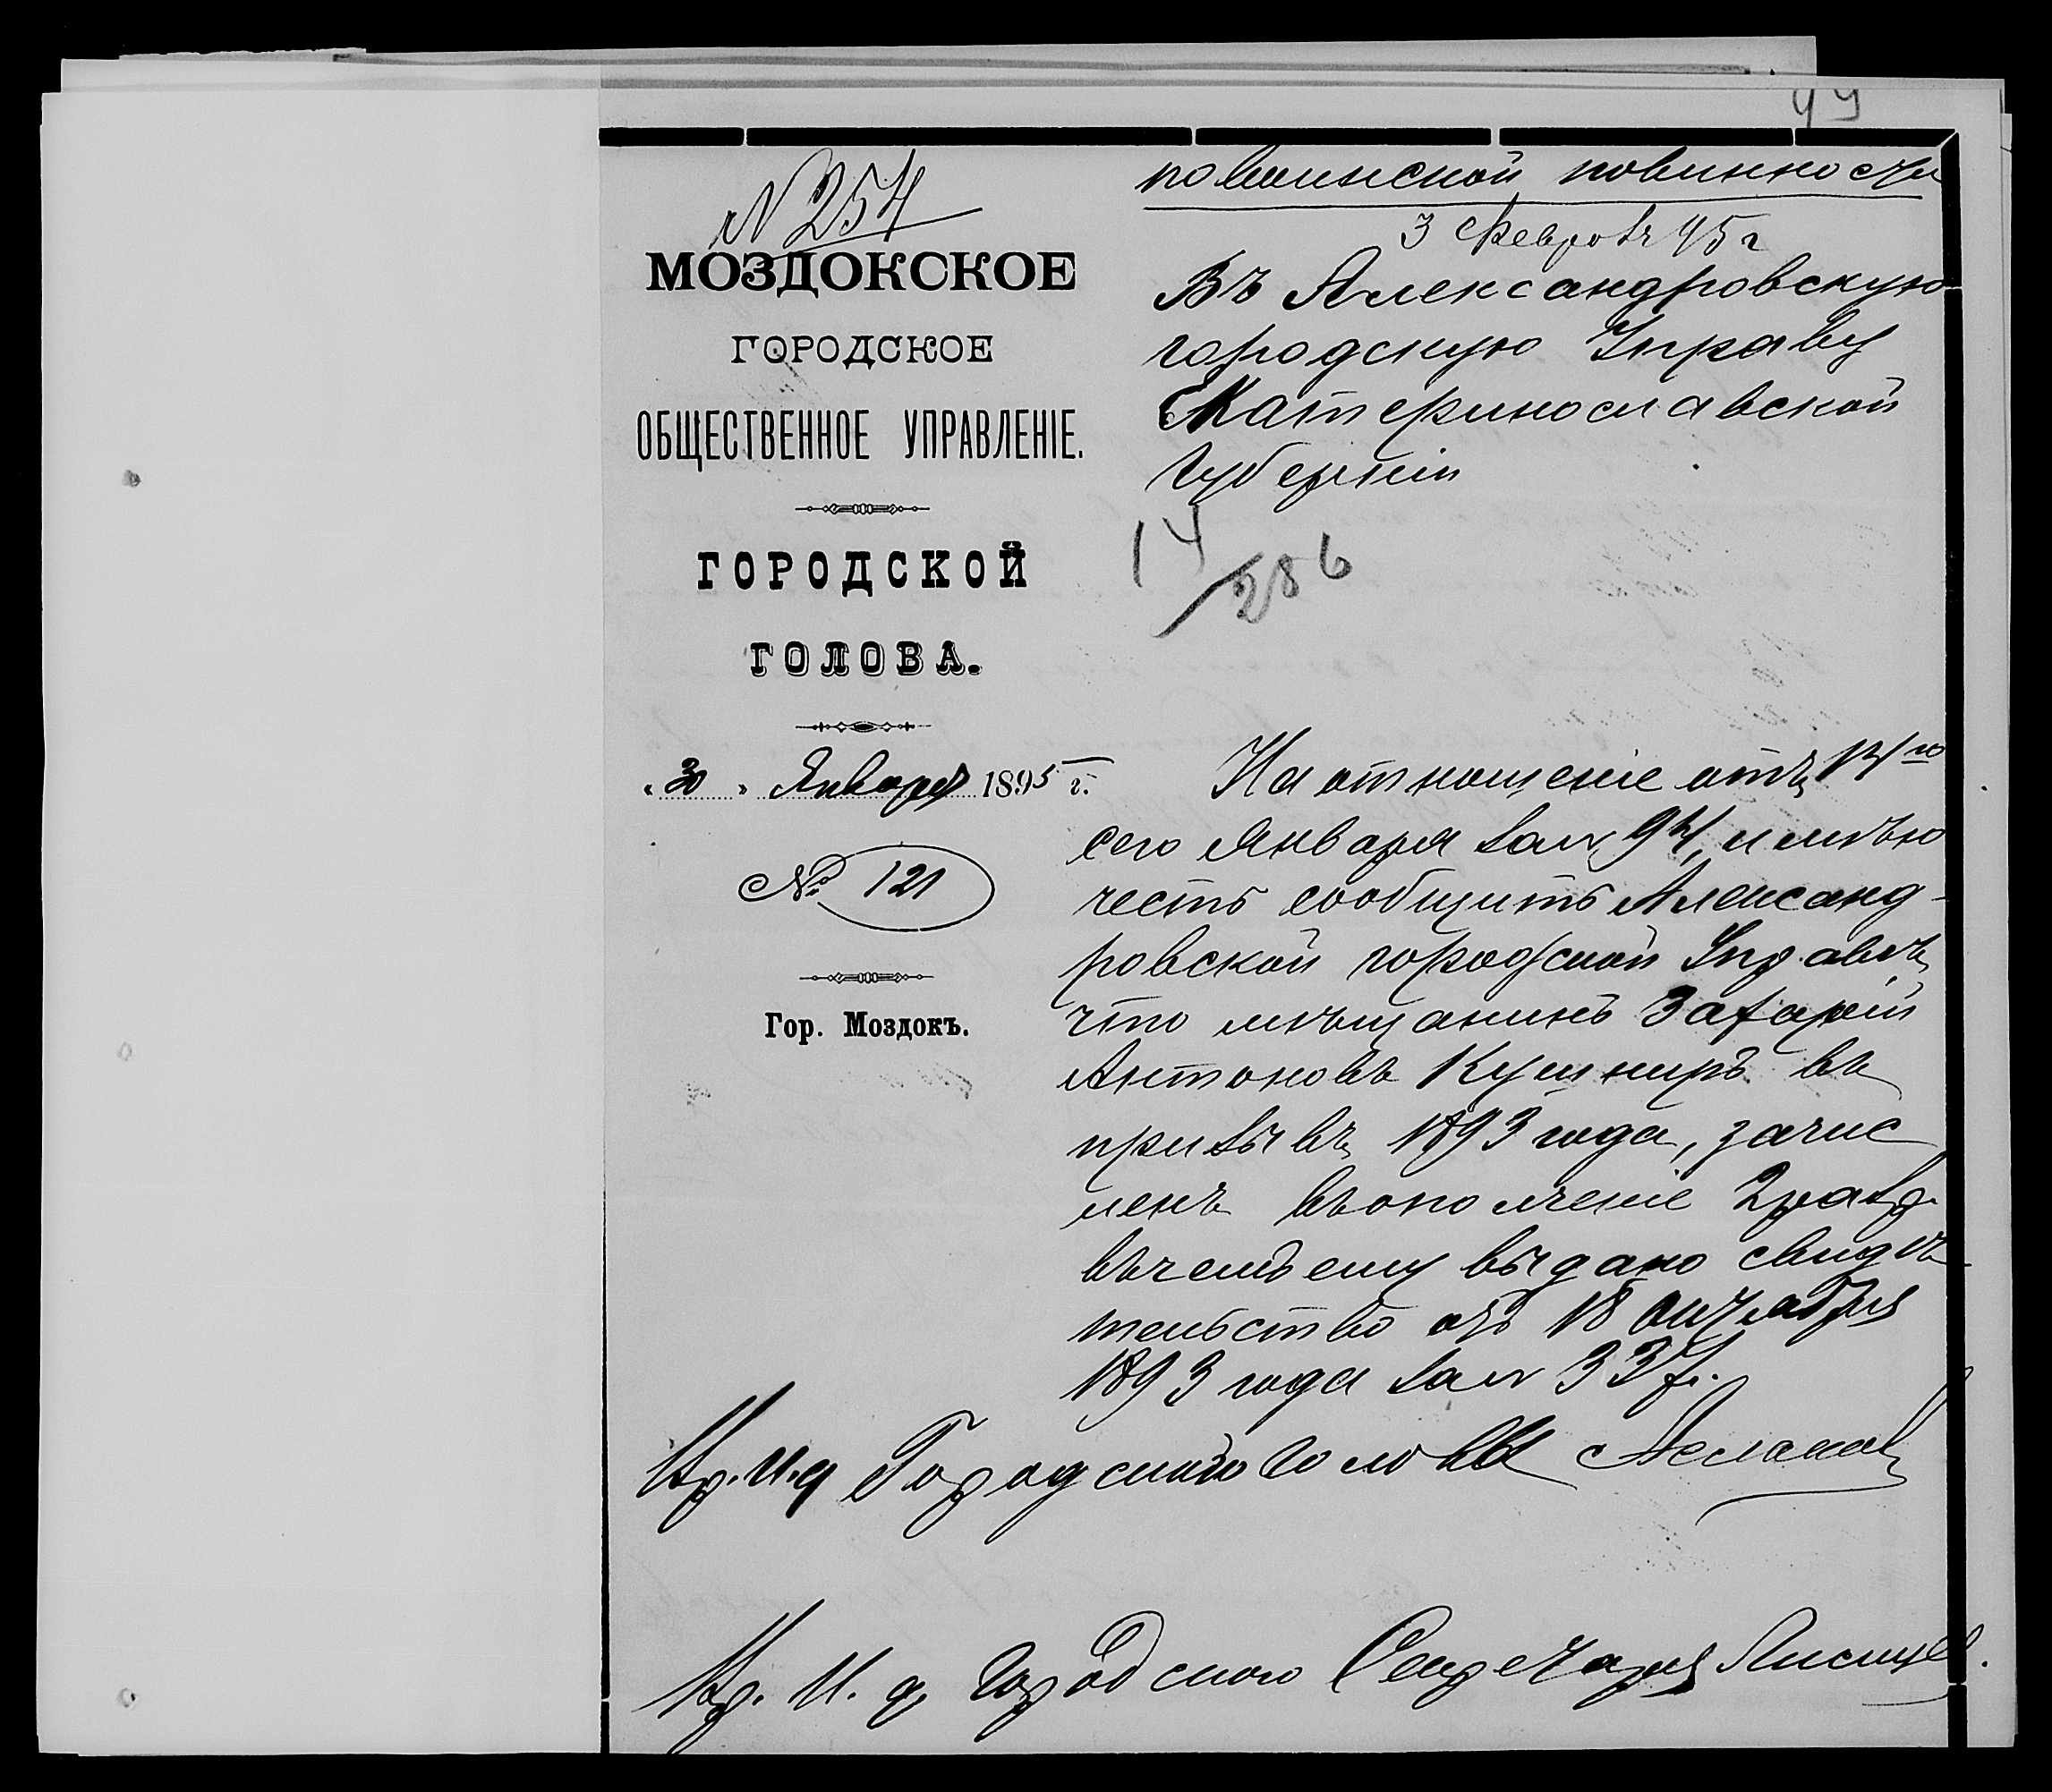 49
№ 254
МОЗДОКСКОЕ
ГОРОДСКОЕ
ОБЩЕСТВЕННОЕ УПРАВЛЕНІЕ.
ГОРОДСКОЙ
ГОЛОВА.
„30„ Января 1895 г.
№ 121
Гор. Моздокъ.
по воинской повинности
3 Февраля 95 г
Въ Александровскую
городскую Управу
Екатеринославской
Губерніи
14/286
На отношеніе отъ 14го
сего Января за № 94, имѣю
честь сообщить Александ-
ровской городской Управѣ,
что мѣщанинъ Захарій
Антоновъ Кушниръ въ
призывъ 1893 года, зачис
ленъ въ ополченіе 2 разр.
въ чемъ ему выдано свидѣ
тельство отъ 18 октября
1893 года за №
Вр. И. д. Городского Головы
Вр. И. д. Городского Секретаря